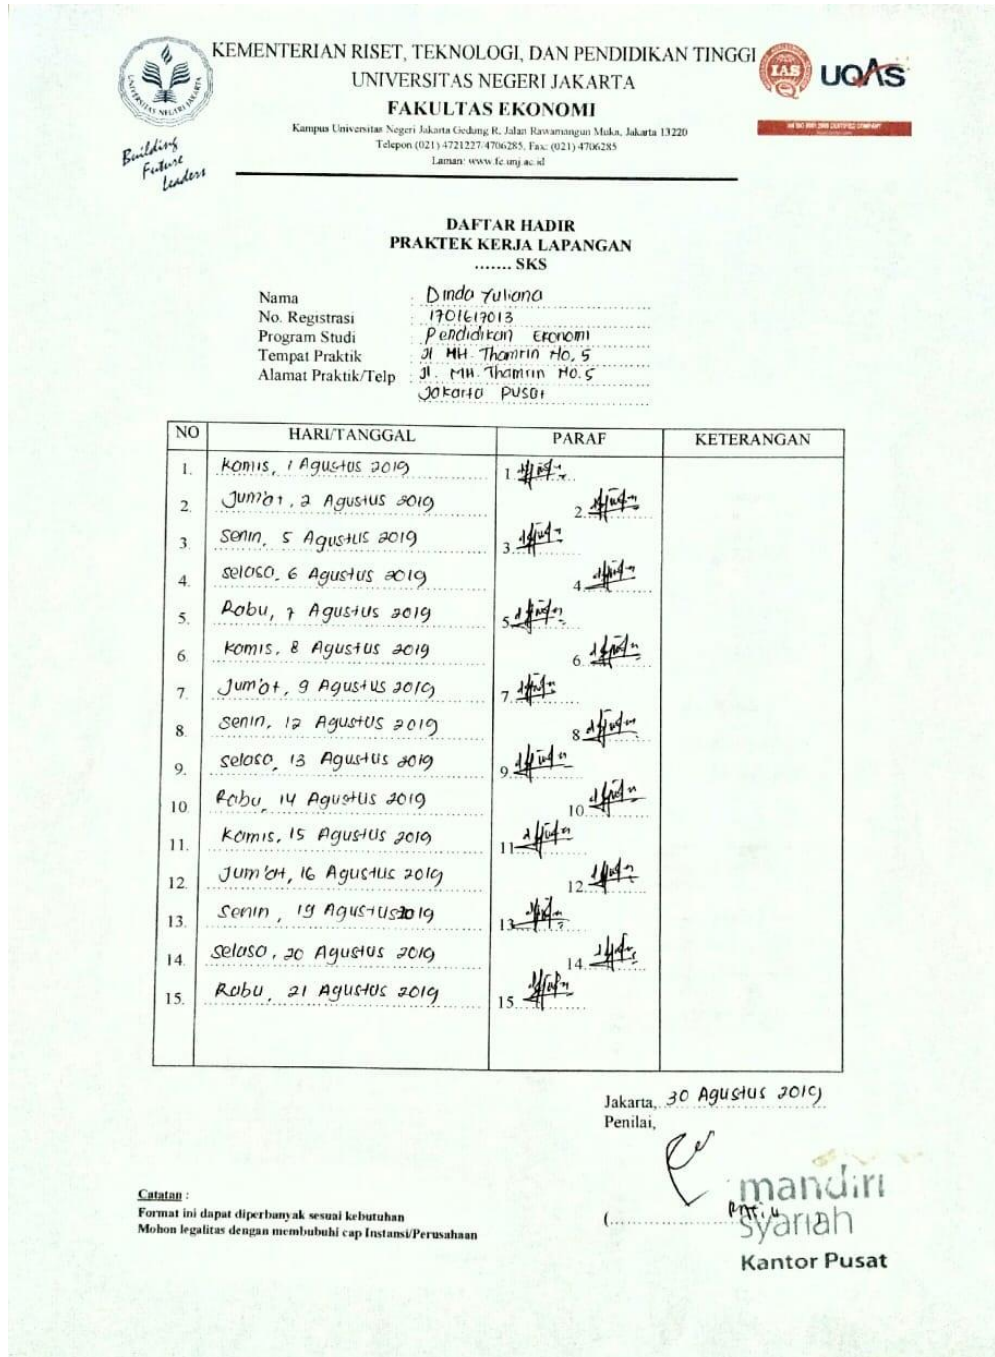 KEMENTERIAN RISET, TEKNOLOGI, DAN PENDIDIKAN TINGGI
UNIVERSITAS NEGERI JAKARTA
FAKULTAS EKONOMI
Kampus Universitas Negeri Jakarta Gedung R, Jalan Rawamangun Muka, Jakarta 13220
Telepon (021) 4721227/4706285, Fax: (021) 4706285
Laman: www.fe.unj.ac.id
UNIVERSITAS NEGERI JAKARTA
Building
Future
Leaders
IAS
UQAS
DAFTAR HADIR
PRAKTEK KERJA LAPANGAN
....... SKS
Nama : Dinda Yuliana
No. Registrasi : 1701617013
Program Studi : Pendidikan Ekonomi
Tempat Praktik : Jl MH. Thamrin No. 5
Alamat Praktik/Telp : Jl. MH. Thamrin No. 5
Jakarta Pusat
NO HARI/TANGGAL PARAF KETERANGAN
1. Kamis, 1 Agustus 2019 1.
2. Jum'at, 2 Agustus 2019 2.
3. Senin, 5 Agustus 2019 3.
4. Selasa, 6 Agustus 2019 4.
5. Rabu, 7 Agustus 2019 5.
6. Kamis, 8 Agustus 2019 6.
7. Jum'at, 9 Agustus 2019 7.
8. Senin, 12 Agustus 2019 8.
9. Selasa, 13 Agustus 2019 9.
10. Rabu, 14 Agustus 2019 10.
11. Kamis, 15 Agustus 2019 11.
12. Jum'at, 16 Agustus 2019 12.
13. Senin, 19 Agustus 2019 13.
14. Selasa, 20 Agustus 2019 14.
15. Rabu, 21 Agustus 2019 15.
Jakarta, 30 Agustus 2019
Penilai,
mandiri
syariah
Kantor Pusat
Catatan :
Format ini dapat diperbanyak sesuai kebutuhan
Mohon legalitas dengan membubuhi cap Instansi/Perusahaan